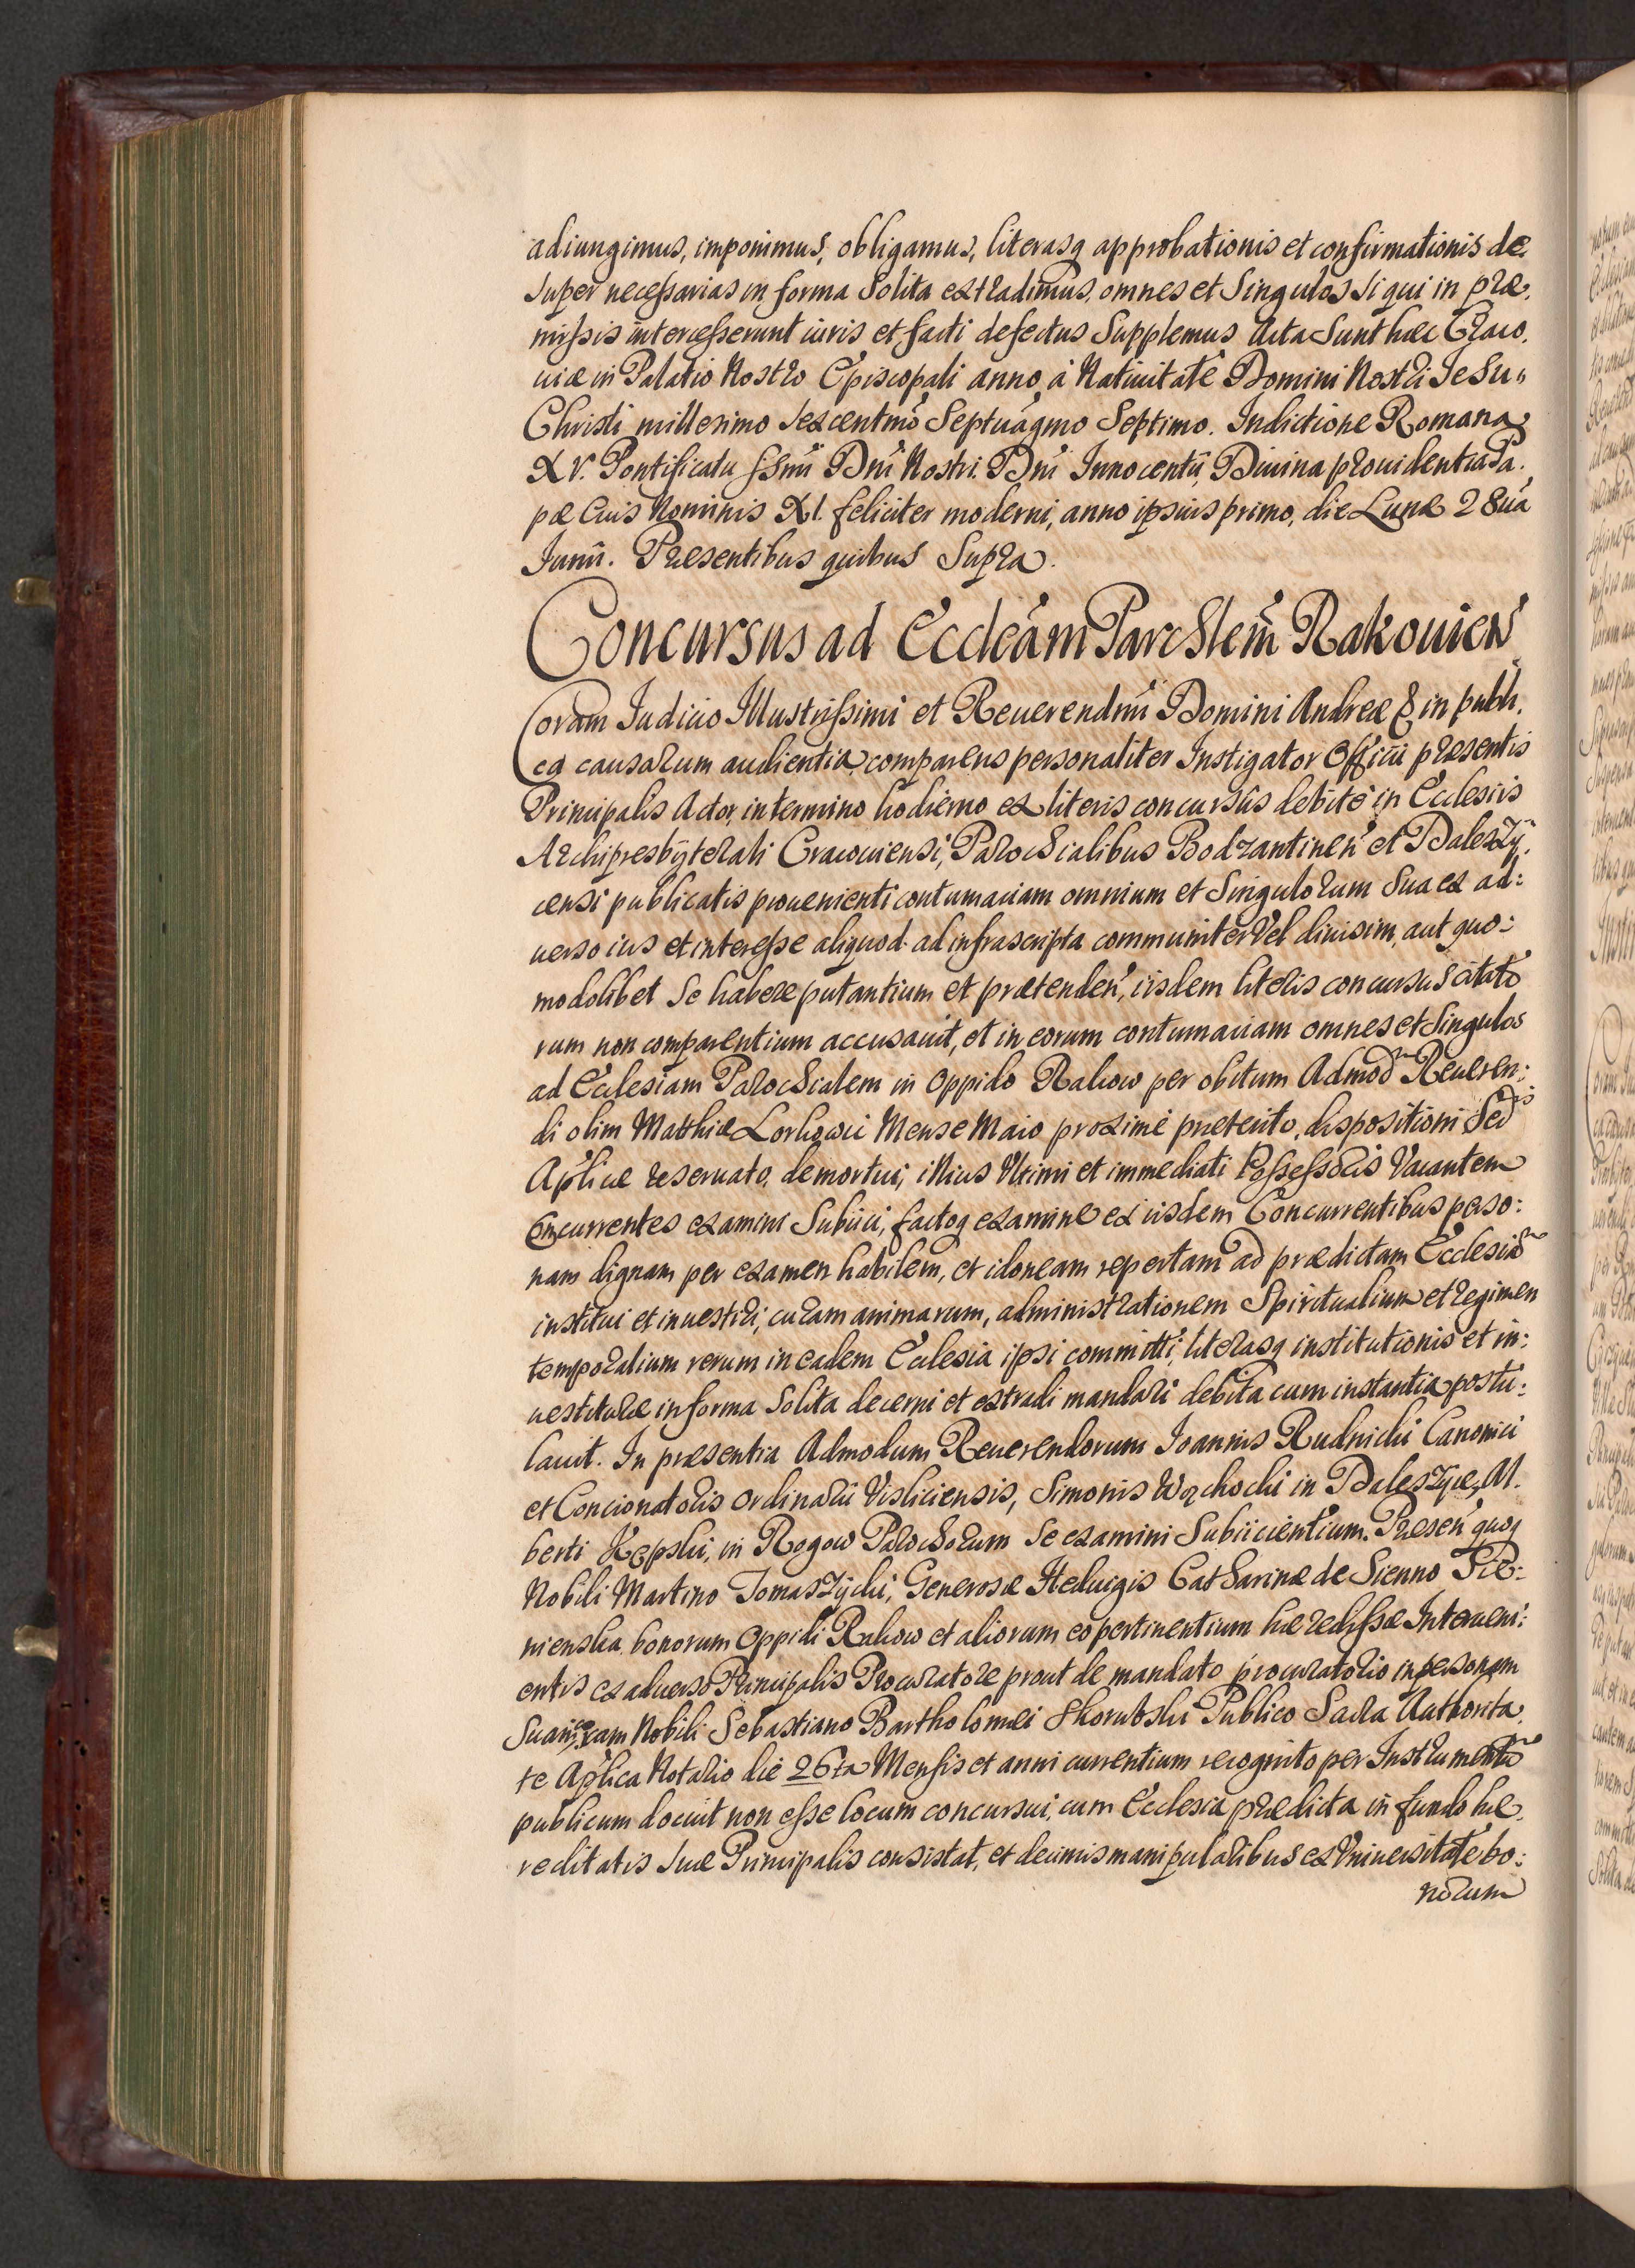 adiungimus, imponimus, obligamus, literasq approbationis et confirmationis de.
super necessarias in forma solita extradimus, omnes et singulos si qui in præ.
missis intercesserunt iuris et facti defectus supplemus Acta sunt hæc Craco.
uiæ in Palatio Nostro Episcopali anno à Natiuitate Domini Nostri Iesu"
Christi millesimo sexcentmo septuagmo septimo. Indictione Romana
XV. Pontificatu SSmi Dni Nostri Dni Innocentii, Diuina prouidentia Pa.
pæ Euis Nominis XI. feliciter moderni, anno ipsius primo, die Lunæ 28ua
Iunii. Præsentibus quibus supra.
Concursus ad Eccleam Parchlem Rakouien
Coram Iudicio Illustrissimi et Reuerendmi Domini Andreæ & in publi.
ca causarum audientia, comparens personaliter Instigator Officii præsentis
Principalis Actor, in termino hodierno ex literis concursus debite in Ecclesiis
Archipresbyterali Cracouiensi, Parochialibus Bodzantinen et Daleszy.
censi publicatis proueniente contumaciam omnium et singulorum sua ex ad:
uerso ius et interesse aliquod ad infrascripta communiter vel diuisim, aut quo:
modolibet se habere putantium et prætenden, iisdem literis concursus citato
rum non comparentium accusauit, et in eorum contumaciam omnes et singulos
ad Ecclesiam Parochialem in Oppido Rakow per obitum Admod Reueren:
di olim Matthiæ Lorkowic Mense Maio proxime præterito, dispositioni Sed is
Aplicæ reseruato, demortui, illius Vltimi et immediati Possessoris Vacantem
Concurrentes examini subiici, factoq examine ex iisdem Concurrentibus perso:
nam dignam per examen habilem, et idoneam repertam ad prædictam Ecclesia m
institui et inuestiri, curam animarum, administrationem Spiritualium et regimen
temporalium rerum in eadem Ecclesia ipsi committi, literasq institutionis et in:
uestituræ in forma solita decerni et extradi mandari debita cum instantia postu:
lauit. In præsentia Admodum Reuerendorum Ioannis Rudnicki Canonici
et Concionatoris Ordinarii Visliciensis, Simonis Wąchocki in Daleszyce, Al.
berti Kępski, in Rogow Parochorum se examini subiicientium. Præsen quoq
Nobili Martino Tomaszycki, Generosæ Heduigis Catharinæ de Sienno Sie:
nienska bonorum Oppidi Rakow et aliorum eo pertinentium hæredissæ Interueni:
entis ex aduerso Principalis Procuratore prout de mandato procuratorio in personam
suam, coram Nobili Sebastiano Bartholomæi Skorubski Publico Sacra Authorita.
te Aplica Notario die 26ta Mensis et anni currentium recognito per Instrumentu m
publicum docuit non esse locum concursui, cum Ecclesia prædicta in fundo hæ.
reditatis suæ Principalis consistat, et decimis manipularibus ex Vniuersitate bo:
norum